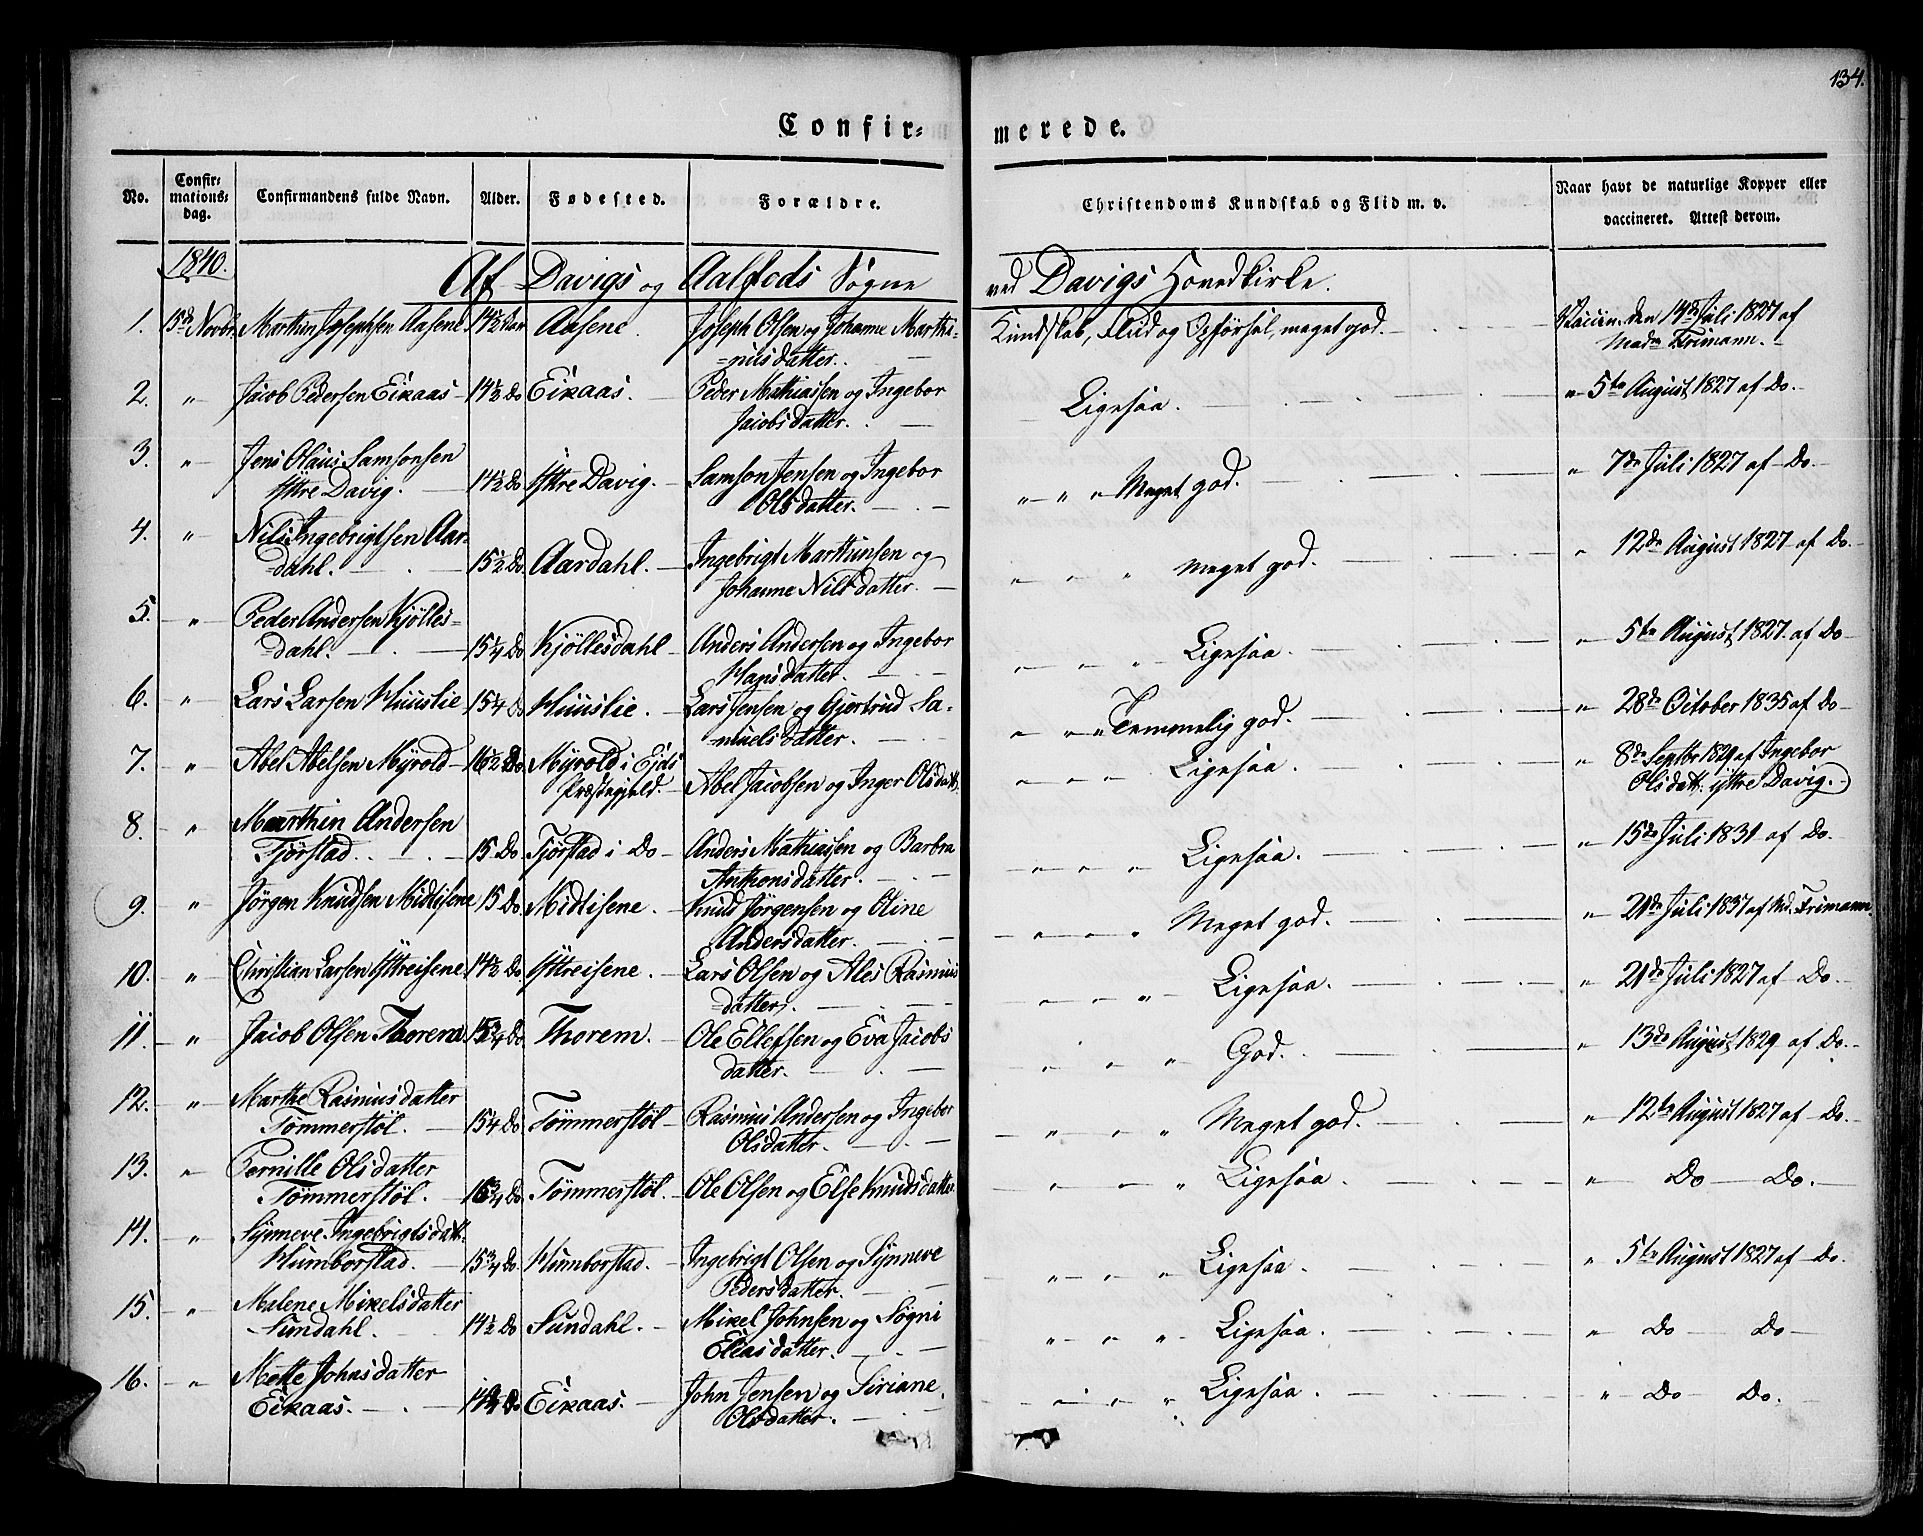 134.
Confir= merede.
No. Confir=mations=dag. Confirmandens fulde Navn. Alder. Fødested. Forældre. Christendoms Kundskab og Flid m. v. Naar havt de naturlige Kopper eller vaccineret. Attest derom.
1840. Af Davigs og Aalfods Sogne ved Davigs Hovedkirke.
1. 15de Novbr. Marthin Josephsen Aasene 14½ Aar Aasene. Joseph Olsen og Johanne Marthi= Kundskab, Fliid og Opførsel, meget god. Vaccin. den 14de Juli 1827 af
=nusdatter. Madm Frimann.
2. " Jacob Pedersen Eikaas 14½ Do Eikaas. Peder Mathiassen og Ingebor Ligesaa. " 5te August 1827 af Do.
Jacobsdatter.
3. " Jens Olaus Samsonsen
Yttre Davig. 14½ Do Yttre Davig. Samson Jensen og Ingebor " " " Meget god. " 7de Juli 1827 af Do.
Olsdatter.
4. " Nils Ingebrigtsen Aar=
dahl. 15½ Do. Aardahl. Ingebrigt Marthinsen og " " " meget god. " 12de August 1827 af Do.
Johanne Nilsdatter.
5. " Peder Andersen Kjølles=
=dahl. 15¼ Do Kjøllesdahl Anders Andersen og Ingebor " " " Ligesaa. " 5te August 1827. af Do
Hansdatter.
6. " Lars Larsen Huuslie 15¼ Do Huuslie. Lars Jensen og Gjertrud Sa= " " " Temmelig god. " 28de October 1835 af Do
=muelsdatter.
7. " Abel Abelsen Myrold 16½ Do. Myrold i Ejds Abel Jacobsen og Inger Olsdatt. " " " Ligesaa. " 8de Septbr 1829 af Ingebor
Præstegjeld. Olsdatt. Yttre Davig.
8. " Marthin Andersen
Tjørstad. 15 Do. Tjørstad i Do Anders Mathiassen og Barbra " " " Ligesaa. " 15de Juli 1831 af Do.
Anthonsdatter.
9. " Jørgen Knudsen Midtisene 15 Do. Midtisene. Knud Jørgensen og Oline " " " Meget god. " 21de Juli 1837 af Md. Frimann.
Andersdatter.
10. " Christian Larsen Yttreisene 14½ Do Yttreisene. Lars Olsen og Ales Rasmus " " " Ligesaa. " 21de Juli 1827 af Do.
=datter.
11. " Jacob Olsen Thorem 15¾ Do. Thorem. Ole Ellefsen og Eva Jacobs " " " God. " 13de August 1829 af Do.
datter.
12. " Marthe Rasmusdatter
Tømmerstøl. 15¼ Do. Tømmerstøl Rasmus Andersen og Ingebor " " " Meget god. " 12te August 1827 af Do.
Olsdatter.
13. " Pernille Olsdatter
Tømmerstøl. Do. Tømmerstøl. Ole Olsen og Else Knudsdatter " " " Ligesaa. " Do Do.
14. " Synneve Ingebrigtsdatt.
Humborstad. 15¾ Do. Humborstad. Ingebrigt Olsen og Synneve " " " Ligesaa. " 5te August 1827 af Do.
Pedersdatter.
15. " Malene Mikelsdatter
Sundahl. 14½ Do Sundahl. Mikel Johnsen og Søgni " " " Ligesaa. " Do Do
Eliasdatter.
16. " Mette Johnsdatter
Eikaas. Do Eikaas. John Jensen og Siriane " " " Ligesaa. " Do Do.
Olsdatter.